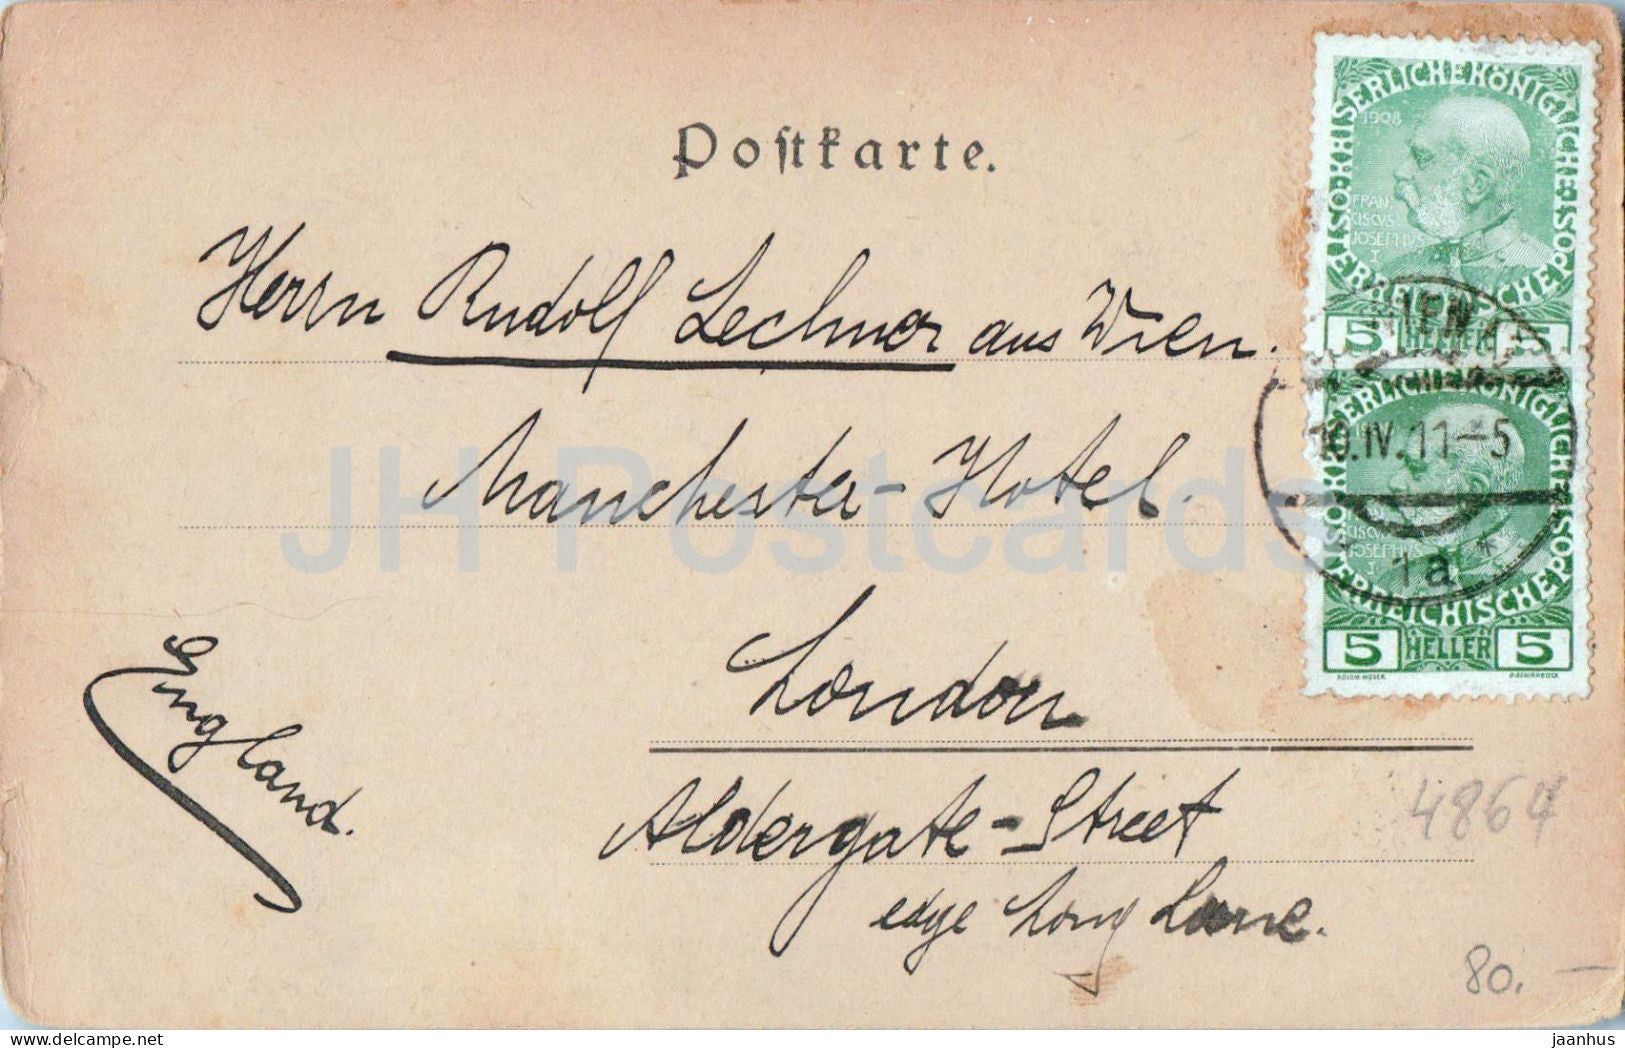 Postkarte.
Herrn Rudolf Lechner aus Wien.
Manchester-Hotel.
London
Aldergate-Street
edge Long Lane.
England.
KAISERLICHE KÖNIGLICHE ÖSTERREICHISCHE POST
1908
FRAN
CISCVS
JOSEPHVS
I
5 HELLER 5
WIEN
10.IV.11-5
1a
*
5 HELLER 5
KOLOM. MOSER
4864
80.–
JH Postcards
jaanhus